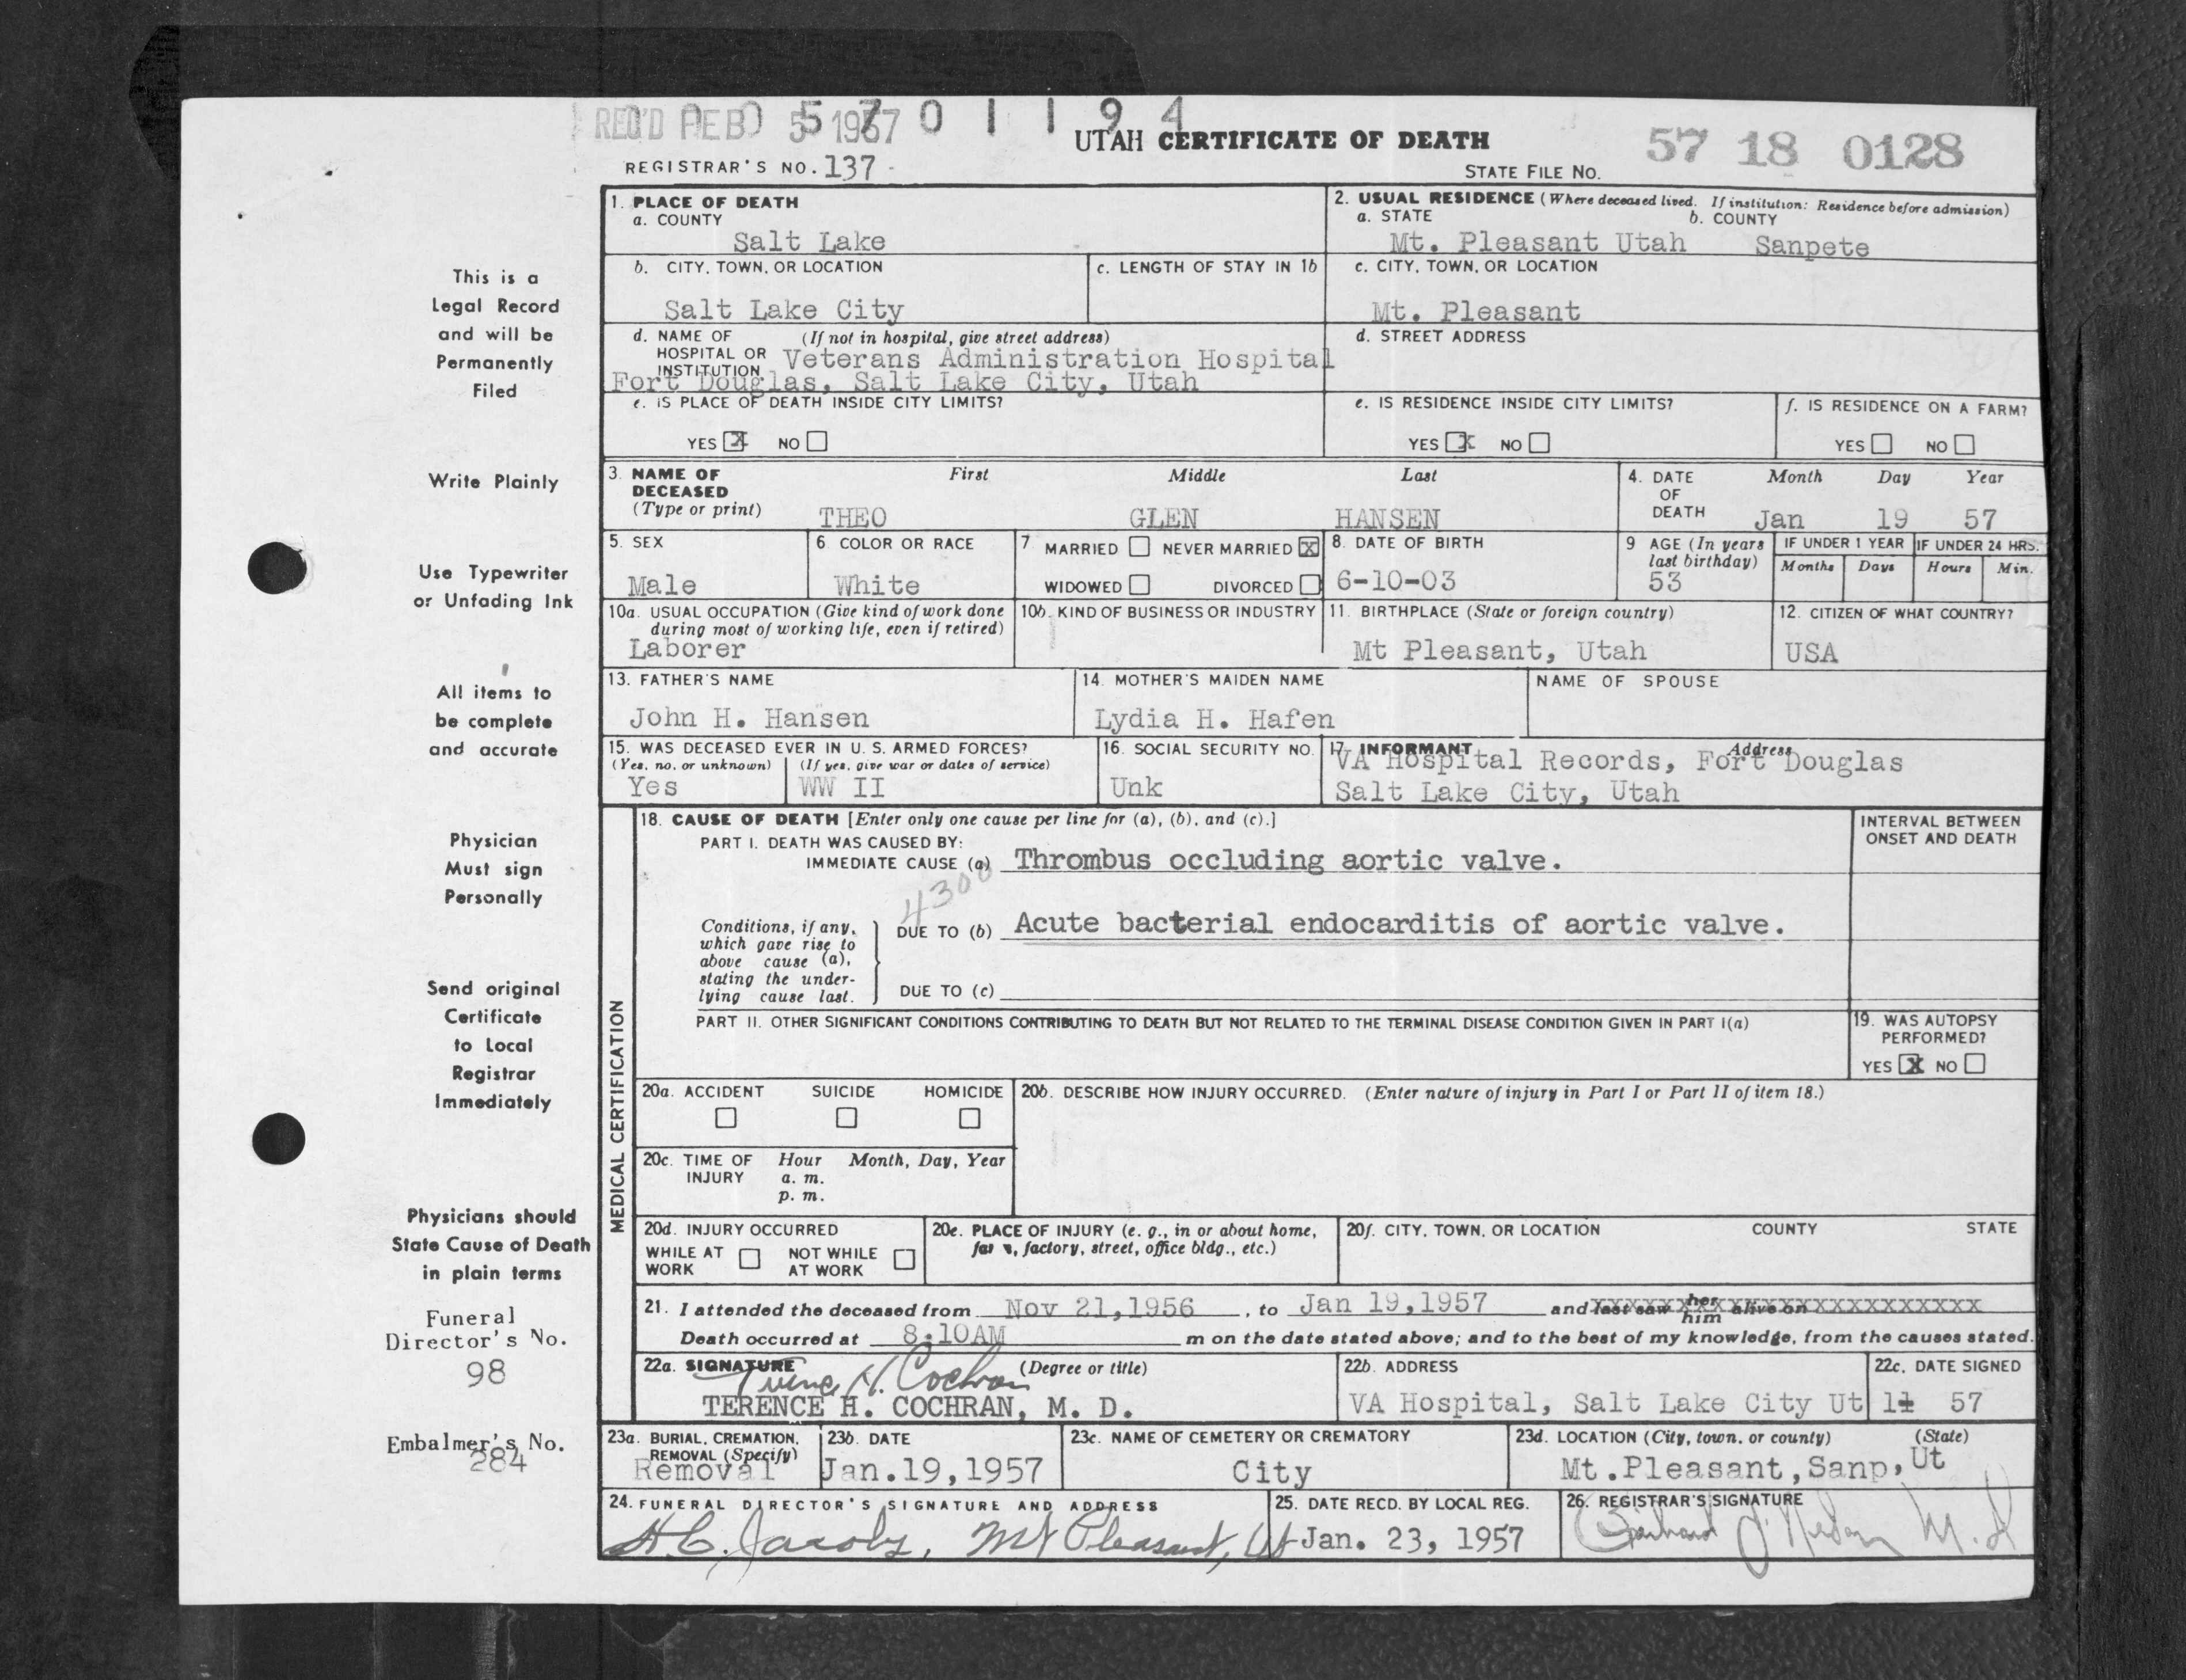 REC'D FEB 5 1957
0 5 7 0 1 1 9 4
UTAH CERTIFICATE OF DEATH
57 18 0128
REGISTRAR'S NO. 137
STATE FILE NO.
1. PLACE OF DEATH
a. COUNTY
Salt Lake
2. USUAL RESIDENCE (Where deceased lived. If institution: Residence before admission)
a. STATE b. COUNTY
Mt. Pleasant Utah Sanpete
b. CITY, TOWN, OR LOCATION
Salt Lake City
c. LENGTH OF STAY IN 1b
c. CITY, TOWN, OR LOCATION
Mt. Pleasant
d. NAME OF (If not in hospital, give street address)
HOSPITAL OR
INSTITUTION
Veterans Administration Hospital
Fort Douglas, Salt Lake City, Utah
d. STREET ADDRESS
e. IS PLACE OF DEATH INSIDE CITY LIMITS?
YES X NO
e. IS RESIDENCE INSIDE CITY LIMITS?
YES X NO
f. IS RESIDENCE ON A FARM?
YES NO
3. NAME OF DECEASED
(Type or print)
First Middle Last
THEO GLEN HANSEN
4. DATE OF DEATH
Month Day Year
Jan 19 57
5. SEX
Male
6. COLOR OR RACE
White
7 MARRIED NEVER MARRIED X
WIDOWED DIVORCED
8. DATE OF BIRTH
6-10-03
9 AGE (In years last birthday)
53
IF UNDER 1 YEAR
Months Days
IF UNDER 24 HRS.
Hours Min.
10a. USUAL OCCUPATION (Give kind of work done
during most of working life, even if retired)
Laborer
10b. KIND OF BUSINESS OR INDUSTRY
11. BIRTHPLACE (State or foreign country)
Mt Pleasant, Utah
12. CITIZEN OF WHAT COUNTRY?
USA
13. FATHER'S NAME
John H. Hansen
14. MOTHER'S MAIDEN NAME
Lydia H. Hafen
NAME OF SPOUSE
15. WAS DECEASED EVER IN U. S. ARMED FORCES?
(Yes, no, or unknown) (If yes, give war or dates of service)
Yes WW II
16. SOCIAL SECURITY NO.
Unk
17. INFORMANT Address
VA Hospital Records, Fort Douglas
Salt Lake City, Utah
MEDICAL CERTIFICATION
18. CAUSE OF DEATH [Enter only one cause per line for (a), (b), and (c).]
PART I. DEATH WAS CAUSED BY:
IMMEDIATE CAUSE (a) Thrombus occluding aortic valve.
4300
Conditions, if any,
which gave rise to
above cause (a),
stating the under-
lying cause last.
DUE TO (b) Acute bacterial endocarditis of aortic valve.
DUE TO (c)
INTERVAL BETWEEN
ONSET AND DEATH
PART II. OTHER SIGNIFICANT CONDITIONS CONTRIBUTING TO DEATH BUT NOT RELATED TO THE TERMINAL DISEASE CONDITION GIVEN IN PART I(a)
19. WAS AUTOPSY
PERFORMED?
YES X NO
20a. ACCIDENT SUICIDE HOMICIDE
20b. DESCRIBE HOW INJURY OCCURRED. (Enter nature of injury in Part I or Part II of item 18.)
20c. TIME OF INJURY
Hour Month, Day, Year
a. m.
p. m.
20d. INJURY OCCURRED
WHILE AT WORK NOT WHILE AT WORK
20e. PLACE OF INJURY (e. g., in or about home,
factory, street, office bldg., etc.)
20f. CITY, TOWN, OR LOCATION COUNTY STATE
21. I attended the deceased from Nov 21,1956, to Jan 19,1957 and last saw her him alive on
Death occurred at 8:10AM m on the date stated above; and to the best of my knowledge, from the causes stated.
22a. SIGNATURE (Degree or title)
Terence H. Cochran
TERENCE H. COCHRAN, M. D.
22b. ADDRESS
VA Hospital, Salt Lake City Ut
22c. DATE SIGNED
57
23a. BURIAL, CREMATION,
REMOVAL (Specify)
Removal
23b. DATE
Jan.19,1957
23c. NAME OF CEMETERY OR CREMATORY
City
23d. LOCATION (City, town, or county) (State)
Mt.Pleasant,Sanp,Ut
24. FUNERAL DIRECTOR'S SIGNATURE AND ADDRESS
H.C. Jacobs, Mt Pleasant, Ut
25. DATE RECD. BY LOCAL REG.
Jan. 23, 1957
26. REGISTRAR'S SIGNATURE
This is a
Legal Record
and will be
Permanently
Filed
Write Plainly
Use Typewriter
or Unfading Ink
All items to
be complete
and accurate
Physician
Must sign
Personally
Send original
Certificate
to Local
Registrar
Immediately
Physicians should
State Cause of Death
in plain terms
Funeral
Director's No.
98
Embalmer's No.
284